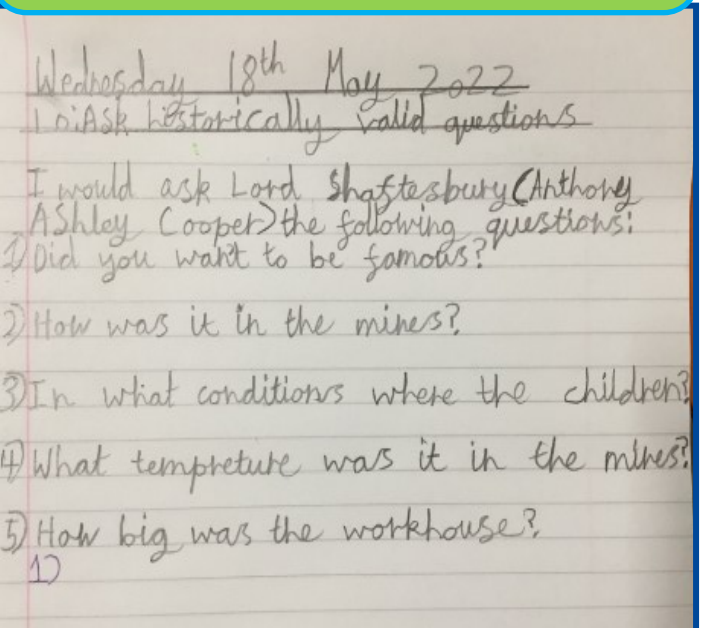 Wednesday 18th May 2022
Lo:Ask historically valid questions
I would ask Lord Shaftesbury (Anthony
Ashley Cooper) the following questions:
1) Did you want to be famous?
2) How was it in the mines?
3) In what conditions where the children?
4) What tempreture was it in the mines?
5) How big was the workhouse?
1)